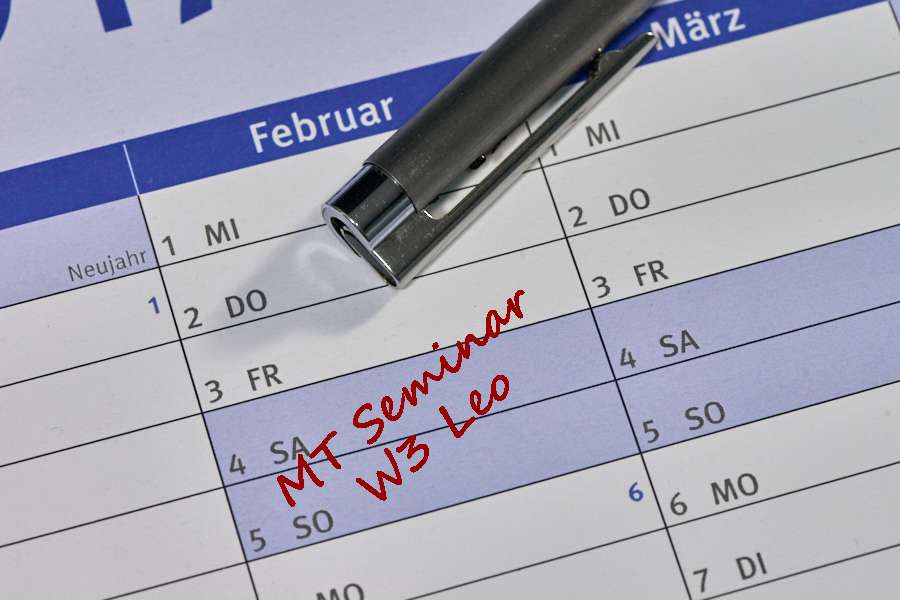 Februar
März
Neujahr
1
1 MI
2 DO
3 FR
4 SA
5 SO
MO
MT Seminar
W3 Leo
MI
2 DO
3 FR
4 SA
5 SO
6
6 MO
7 DI